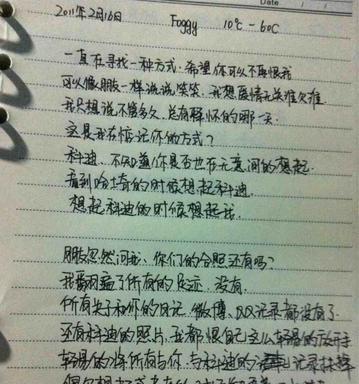 Date
2011年2月16日 Foggy 10℃-60C
一直在寻找一种方式.希望你可以不再恨我
可以像朋友一样说说笑笑.我想爱情无关难欠难
我只想说不管多久.总有释怀的哪一天.
这是我在惦记你的方式?
科迪.不知道你是否也在无意间的想起.
看到哈士奇的时候想起科迪.
想起科迪的时候想起我.
朋友忽然问我.你们的合照还有吗?
我翻遍了所有的足迹.没有.
所有关于和你的日记.微博.QQ记录都没有了.
还有科迪的照片.我都恨自己这么轻易的放手
轻易的将所有与你.与科迪的 记录抹掉